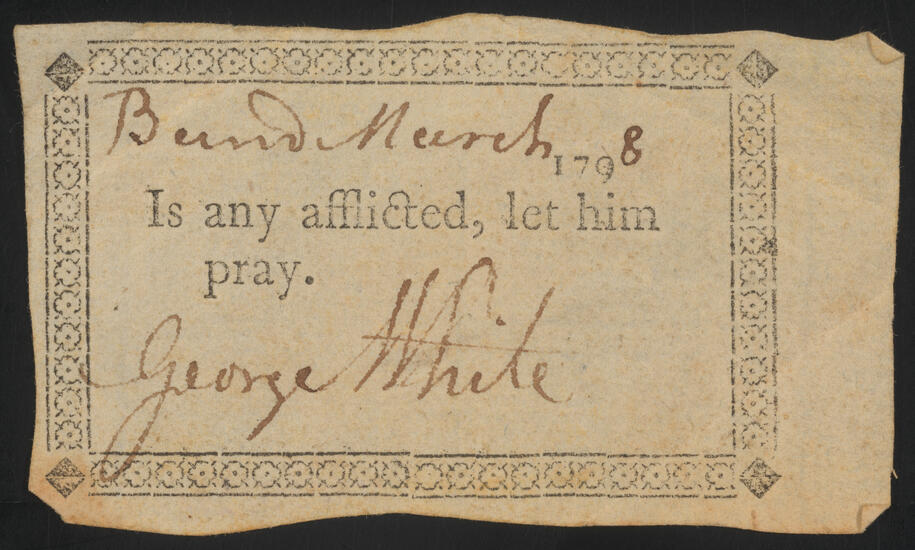 Band March 1798
Is any afflicted, let him
pray.
George White